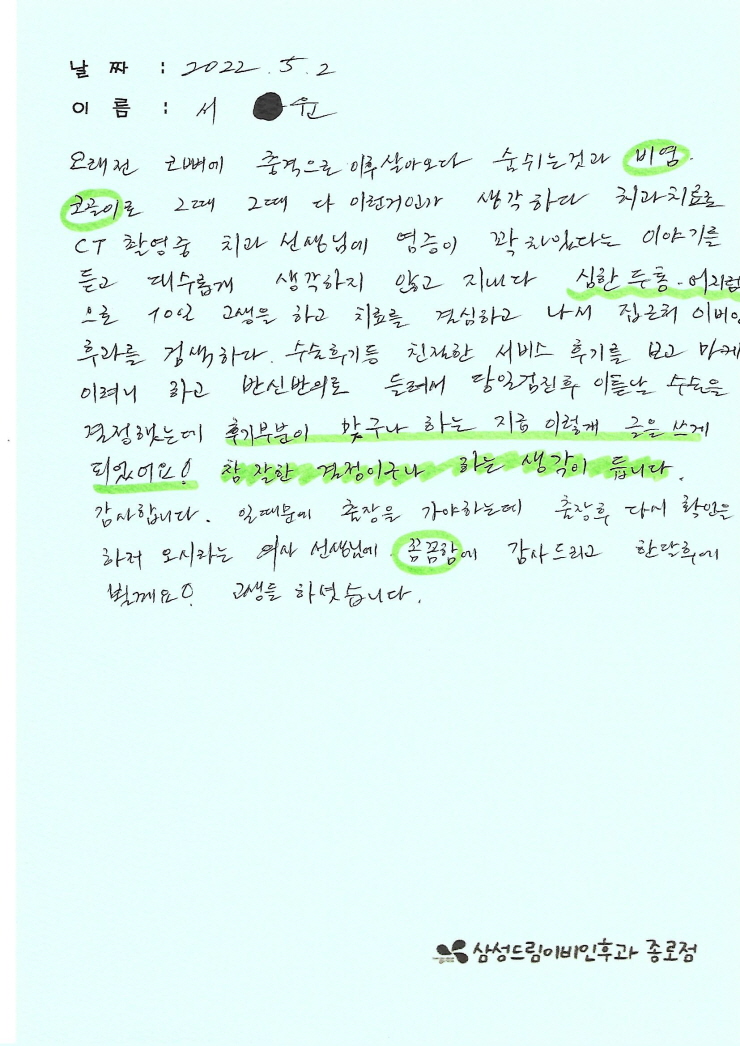 날 짜 : 2022. 5. 2
이 름 : 서 윤
오래전 코뼈에 충격으로 이후 살아오다 숨쉬는것과 비염.
코골이로 그때 그때 다 이런거인가 생각하다 치과치료로
CT 촬영중 치과 선생님에 염증이 꽉 차있다는 이야기를
듣고 대수롭게 생각하지 않고 지내다 심한 두통. 어지럼
으로 10일 고생을 하고 치료를 결심하고 나서 집근처 이비인
후과를 검색하다. 수술후기등 친절한 서비스 후기를 보고 마케
이려니 하고 반신반의로 들려서 당일검진후 이튿날 수술을
결정했는데 후기부분이 맞구나 하는 지금 이렇게 글을 쓰게
되었어요! 참 잘한 결정이구나 하는 생각이 듭니다.
감사합니다. 일때문에 출장을 가야하는데 출장후 다시 확인을
하러 오시라는 의사 선생님에 꼼꼼함에 감사드리고 한달후에
뵐께요! 고생들 하셧습니다.
삼성드림이비인후과 종로점